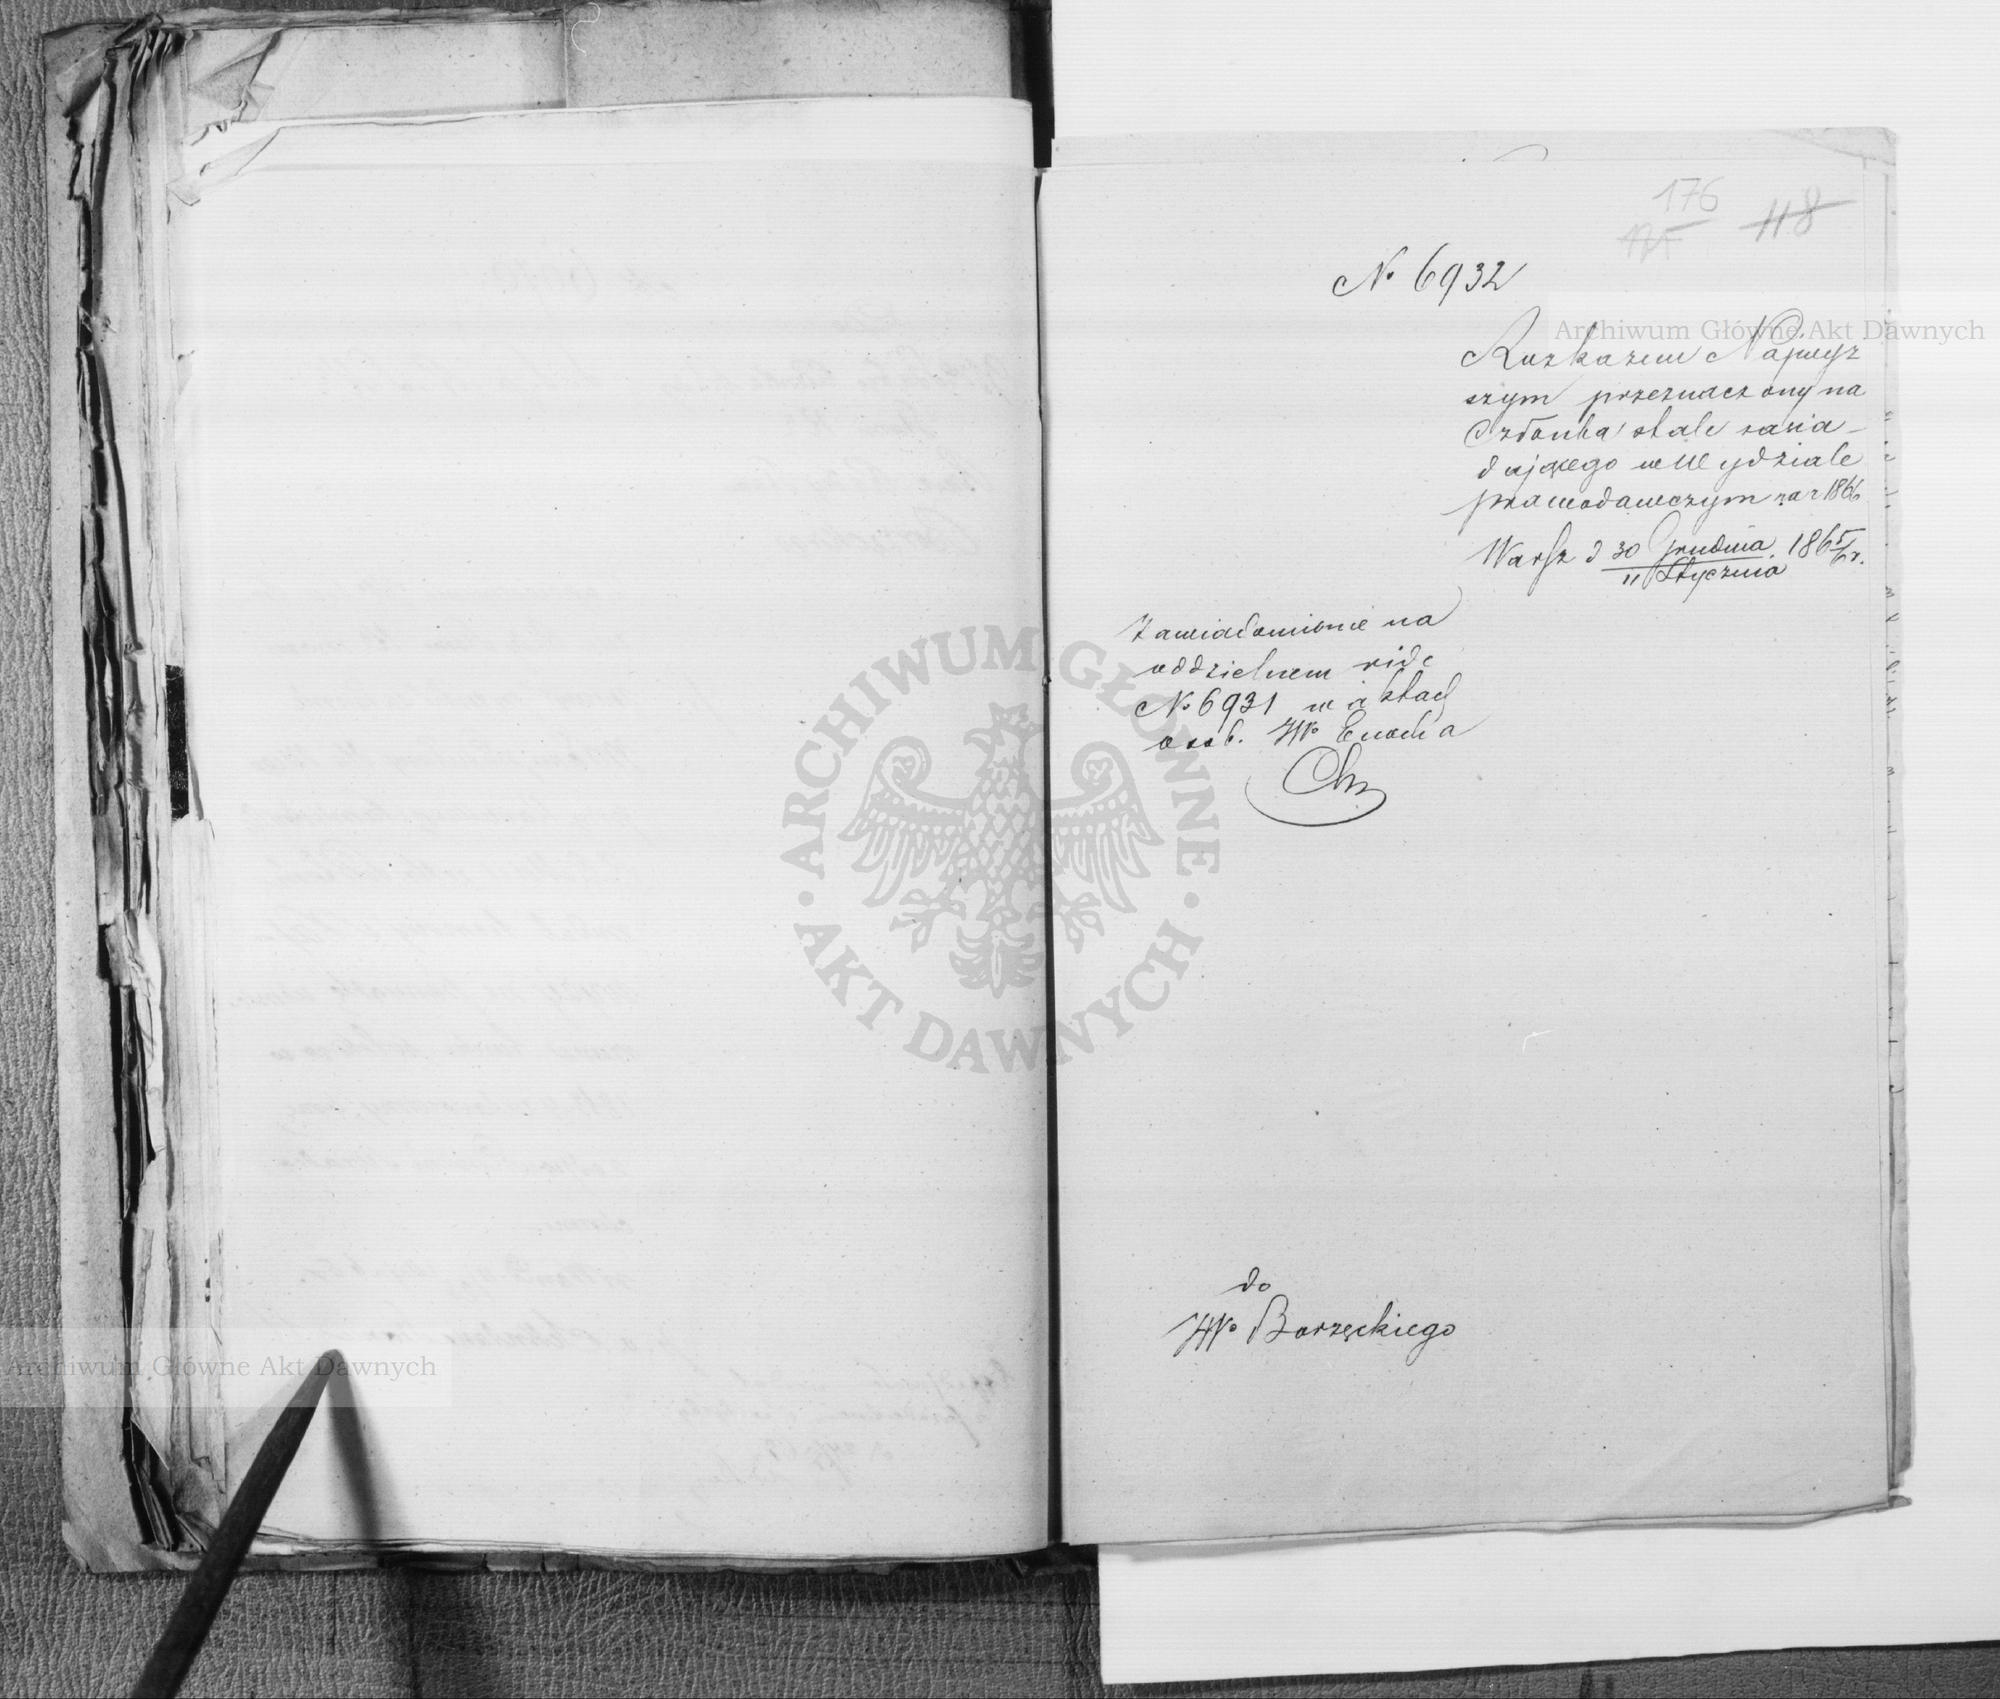 176
118
№ 6932
Rozkazem Najwyż
szym przeznaczony na
Członka stale zasia-
dającego we Wydziale
prawodawczym na r 1866
Warsz d 30 Grudnia / 11 Stycznia 1865/6 r.
Zawiadomienie na
oddzielnem vide
№ 6931 w aktach
osob. JWo Enocha
do
JWo Borzęckiego
Archiwum Główne Akt Dawnych
Archiwum Główne Akt Dawnych
ARCHIWUM GŁÓWNE · AKT DAWNYCH ·